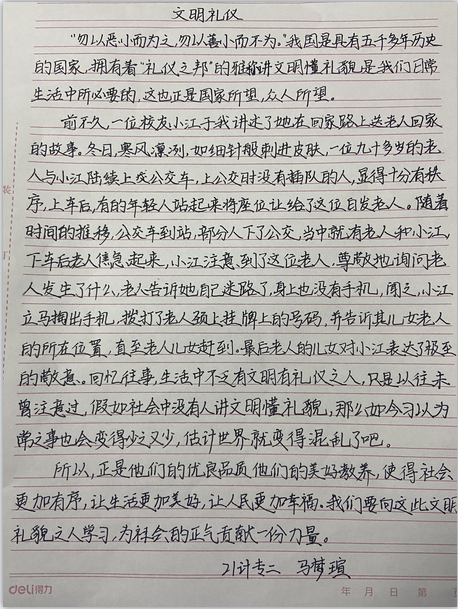 文明礼仪
“勿以恶小而为之,勿以善小而不为。”我国是具有五千多年历史
的国家,拥有着“礼仪之邦”的雅称讲文明懂礼貌是我们日常
生活中所必要的,这也正是国家所望,众人所望。
前不久,一位校友小江于我讲述了她在回家路上送老人回家
的故事。冬日,寒风凛冽,如细针般刺进皮肤,一位九十多岁的老
人与小江陆续上交公交车,上公交时没有插队的人,显得十分有秩
序,上车后,有的年轻人站起来将座位让给了这位白发老人。随着
时间的推移,公交车到站,部分人下了公交,当中就有老人和小江,
下车后老人焦急起来,小江注意到了这位老人,尊敬地询问老
人发生了什么,老人告诉她自己迷路了,身上也没有手机,闻之,小江
立马掏出手机,拨打了老人颈上挂牌上的号码,并告诉其儿女老人
的所在位置,直至老人儿女赶到。最后老人的儿女对小江表达了极至
的敬意。回忆往事,生活中不乏有文明有礼仪之人,只是以往未
曾注意过,假如社会中没有人讲文明懂礼貌,那么如今习以为
常之事也会变得少之又少,估计世界就变得混乱了吧。
所以,正是他们的优良品质他们的美好教养,使得社会
更加有序,让生活更加美好,让人民更加幸福。我们要向这些文明
礼貌之人学习,为社会的正气贡献一份力量。
21计专二 马梦瑄
deli得力 年 月 日 第
装
订